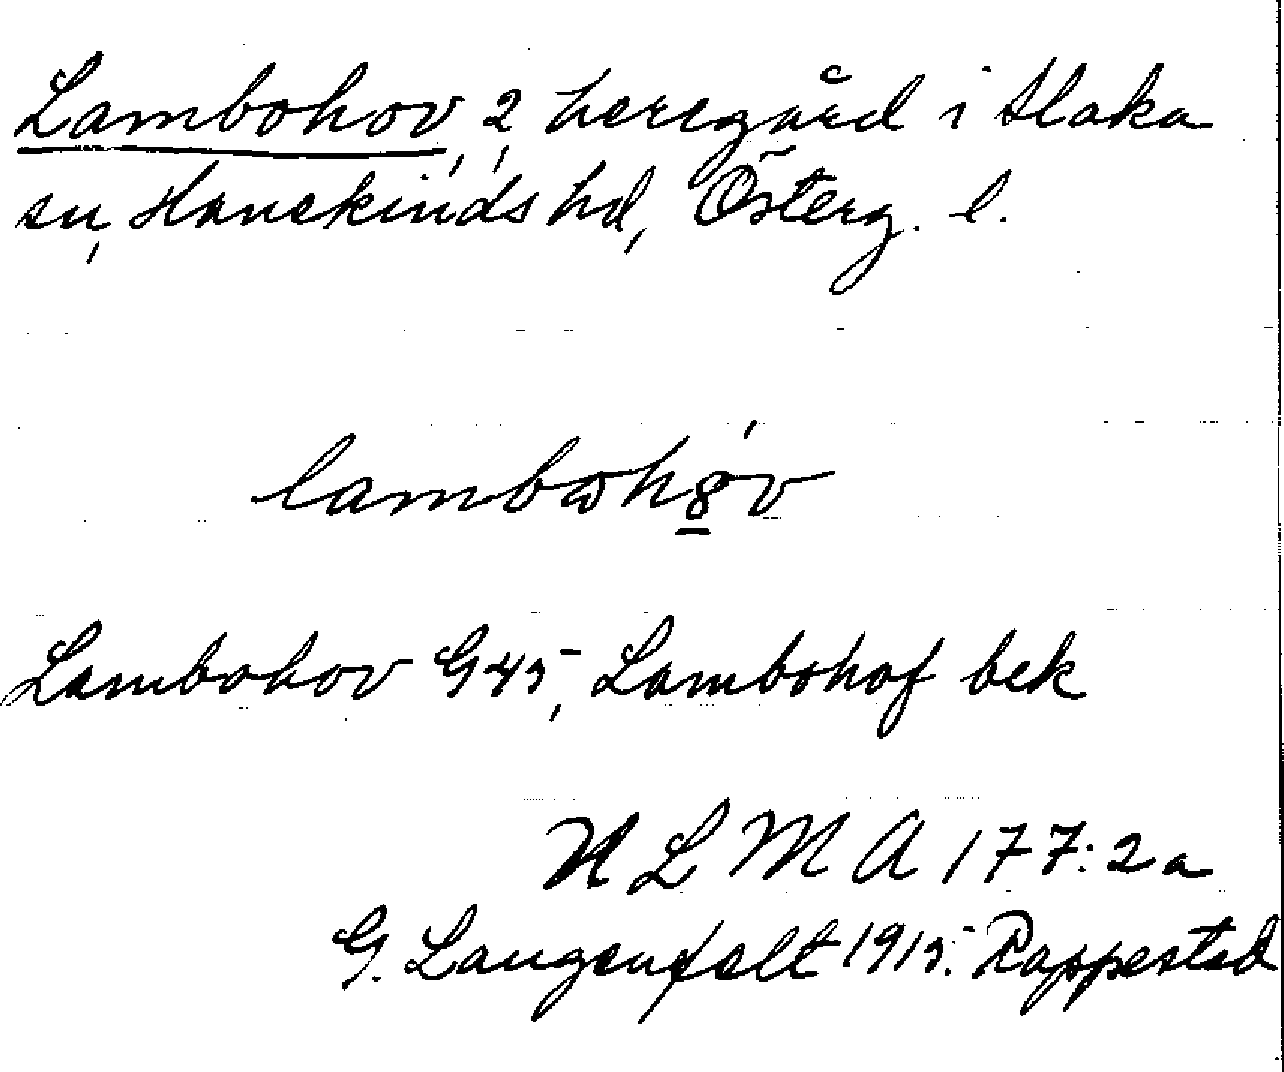 Lambohov, 2, herrgård i Slaka
sn, Hanekinds hd, Österg. l.
lambωh8́v
Lambohov G45, Lambohof bek
N L M A 177:2a
G. Langenfelt 1915. Rappestad